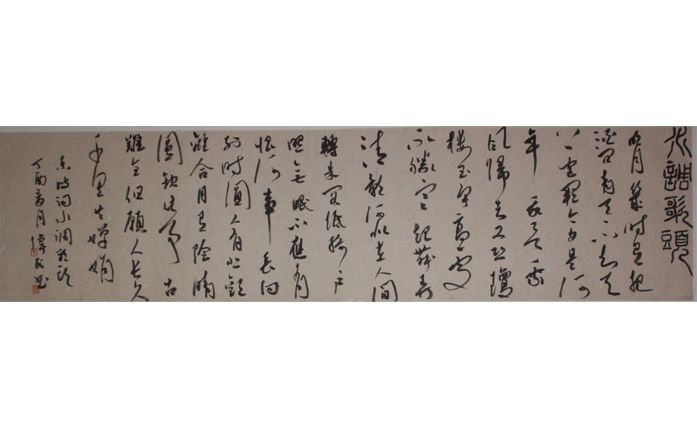 水調歌頭
明月幾時有把
酒問青天不知天
上宮闕今夕是何
年我欲乘
風歸去又恐瓊
樓玉宇高處
不勝寒起舞弄
清影何似在人間
轉朱閣低綺戶
照無眠不應有
恨何事長向
別時圓人有悲歡
離合月有陰晴
圓缺此事古
難全但願人長久
千里共嬋娟
東坡詞水調歌頭
丁酉 月